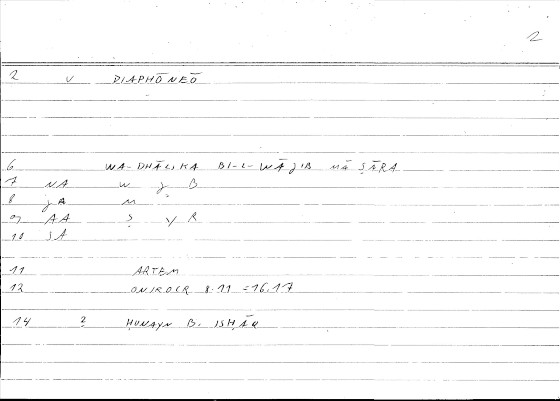 2
2 V DIAPHŌNEŌ
6 WA-DHĀLIKA BI-L-WĀǦIB MĀ ṢĀRA
7 NA W Ǧ B
8 ǦA M
9 AA Ṣ Y R
10 SA
11 ARTEM
12 ONIROCR 8.11 = 16.17
14 ? ḤUNAYN B. ISḤĀQ